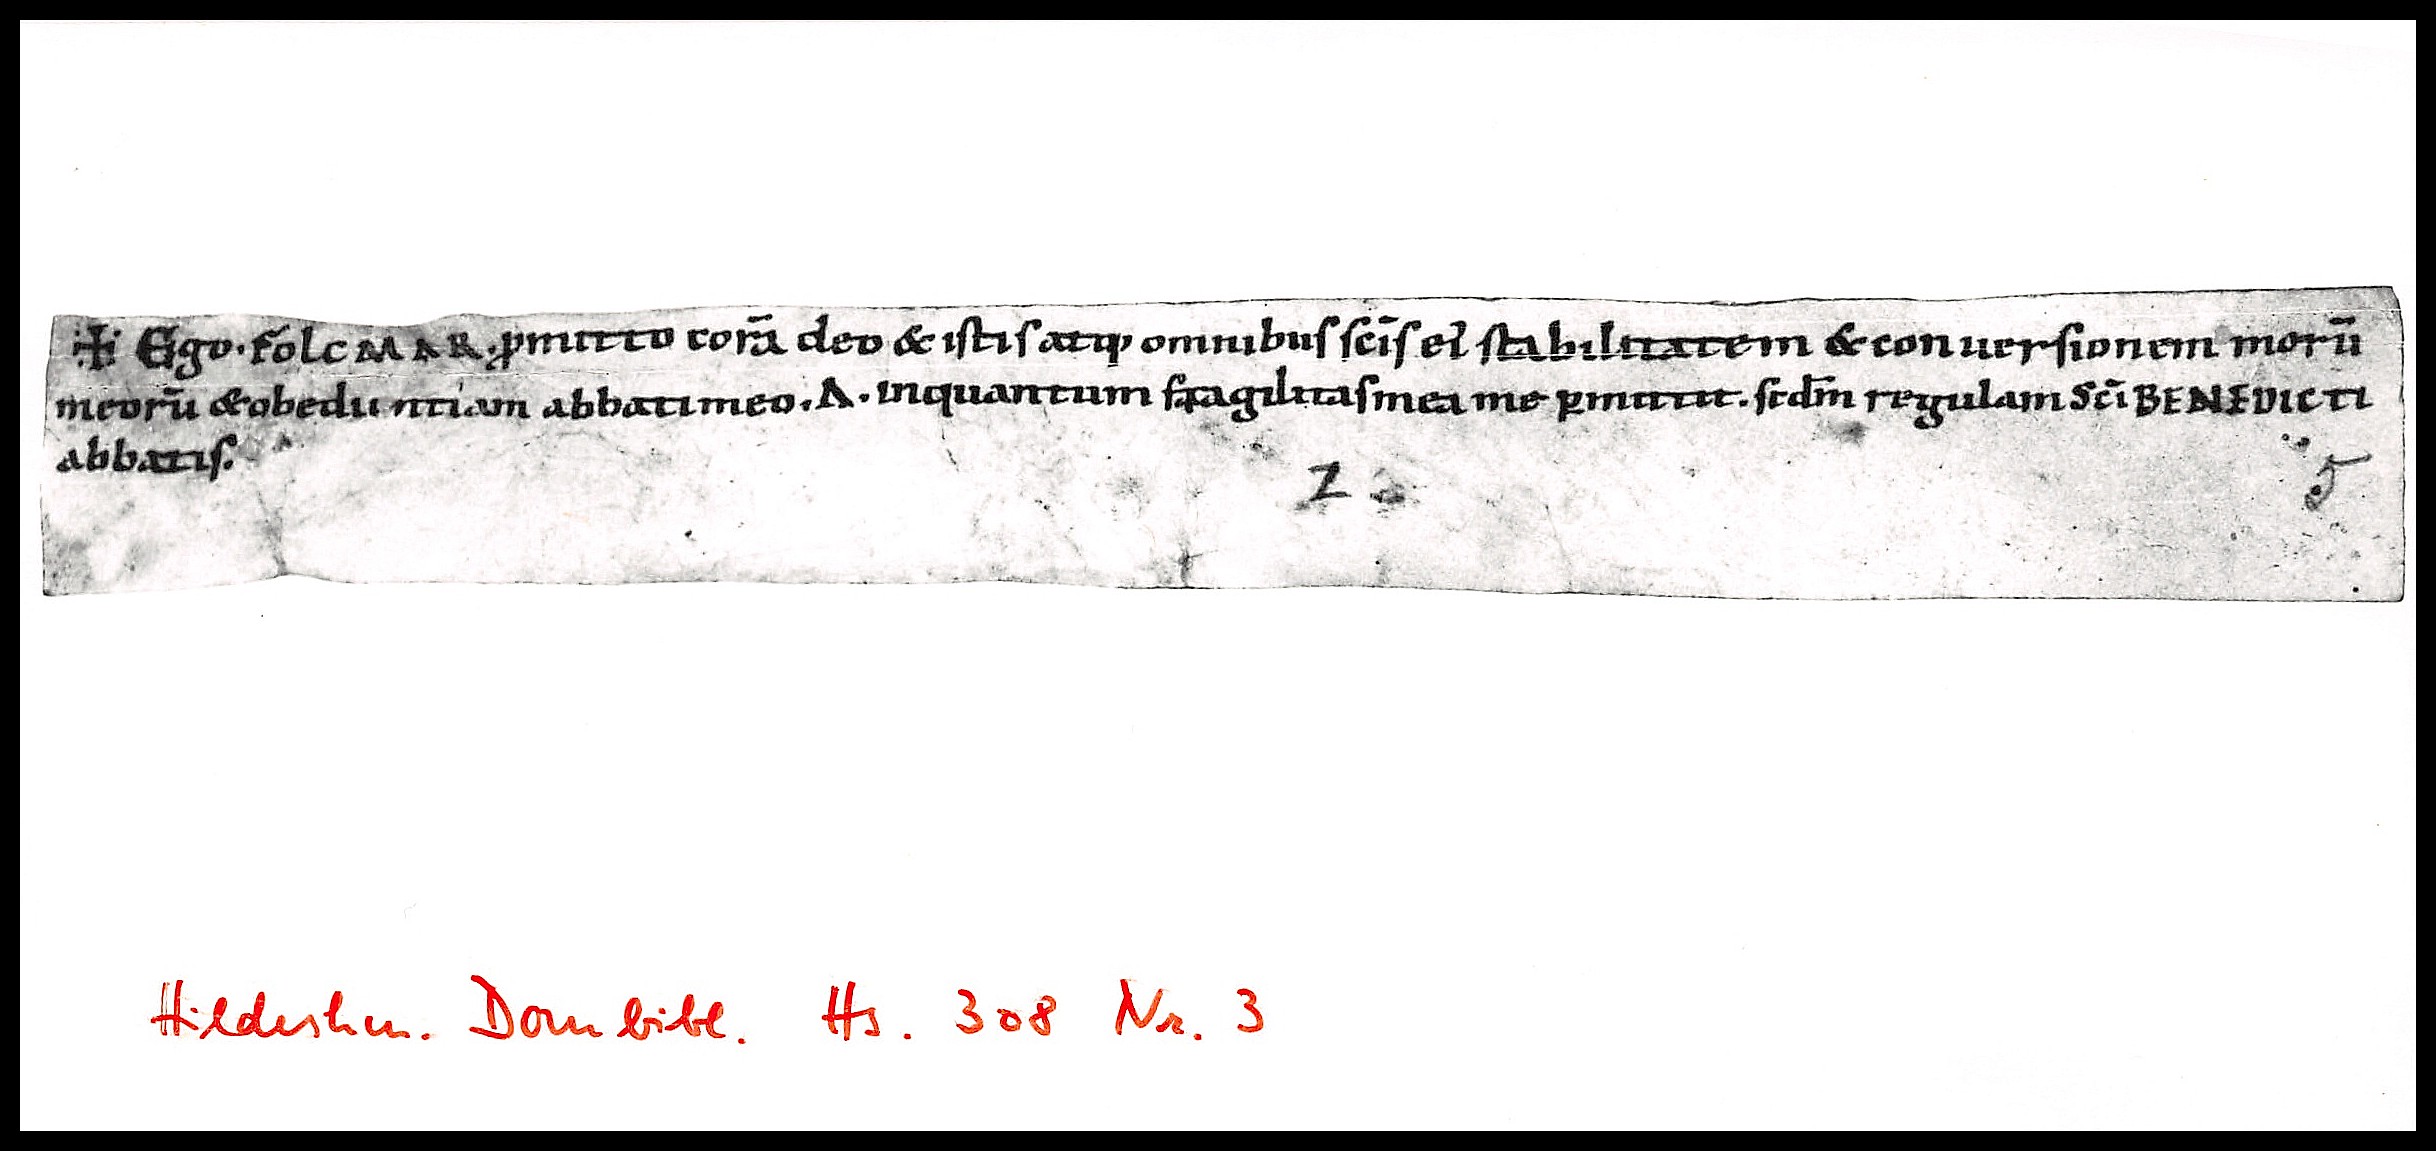 ✠ Ego · folcMAR · ꝓmitto corā deo & istis atq; omnibus scīs eī stabilitatem & conuersionem morū
meorū & obedientiam abbati meo . A . inquantum fragilitas mea me ꝑmittit . scdm̄ regulam Scī BENEDICTI
abbatis.
2
5
Hildeshm. Dombibl. Hs. 308 Nr. 3